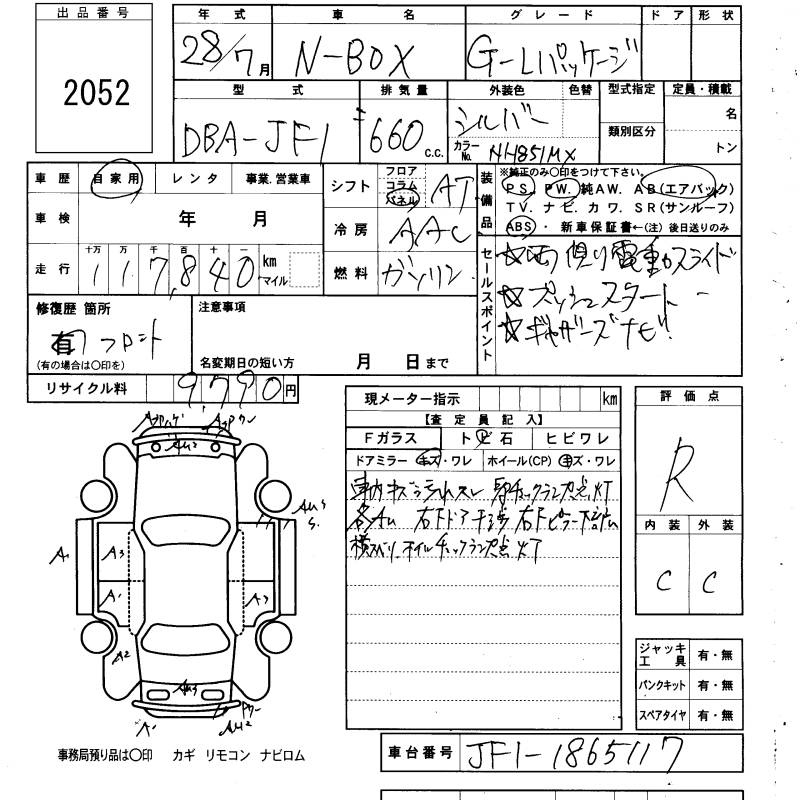 出品番号
2052
年式 車名 グレード ドア 形状
28/7月 N-BOX G-Lパッケージ
型式 排気量 外装色 色替 型式指定 定員・積載
DBA-JF1 660 c.c. シルバー 名
カラーNo. NH851MX 類別区分 トン
車歴 自家用 レンタ 事業.営業車
車検 年 月
走行 十万 万 千 百 十 一
117,840 km マイル
シフト フロア コラム パネル AT
冷房 AAC
燃料 ガソリン
装備品 ※純正のみ〇印をつけて下さい。
PS. PW. 純AW. AB(エアバック)
TV. ナビ. カワ. SR(サンルーフ)
ABS ・ 新車保証書←(注) 後日送りのみ
セールスポイント
☆両側電動スライド
☆プッシュスタート
☆ギャザーズナビ!
修復歴 箇所
有 フロント
(有の場合は〇印を)
注意事項
名変期日の短い方 月 日まで
リサイクル料 9790円
現メーター指示 km
【査定員記入】
Fガラス トビ石 ヒビワレ
ドアミラー キズ・ワレ ホイール(CP) キズ・ワレ
車内キズ汚れスレ チェックランプ点灯
右下ドア干渉 右下ピラー
横スベリ オイルチェックランプ点灯
評価点
R
内装 外装
C C
AU2
AU3
S.
A1 A3
A1 A3
A2
AU3
A1 AU2
ジャッキ工具 有・無
パンクキット 有・無
スペアタイヤ 有・無
事務局預り品は〇印 カギ リモコン ナビロム
車台番号 JF1-1865117